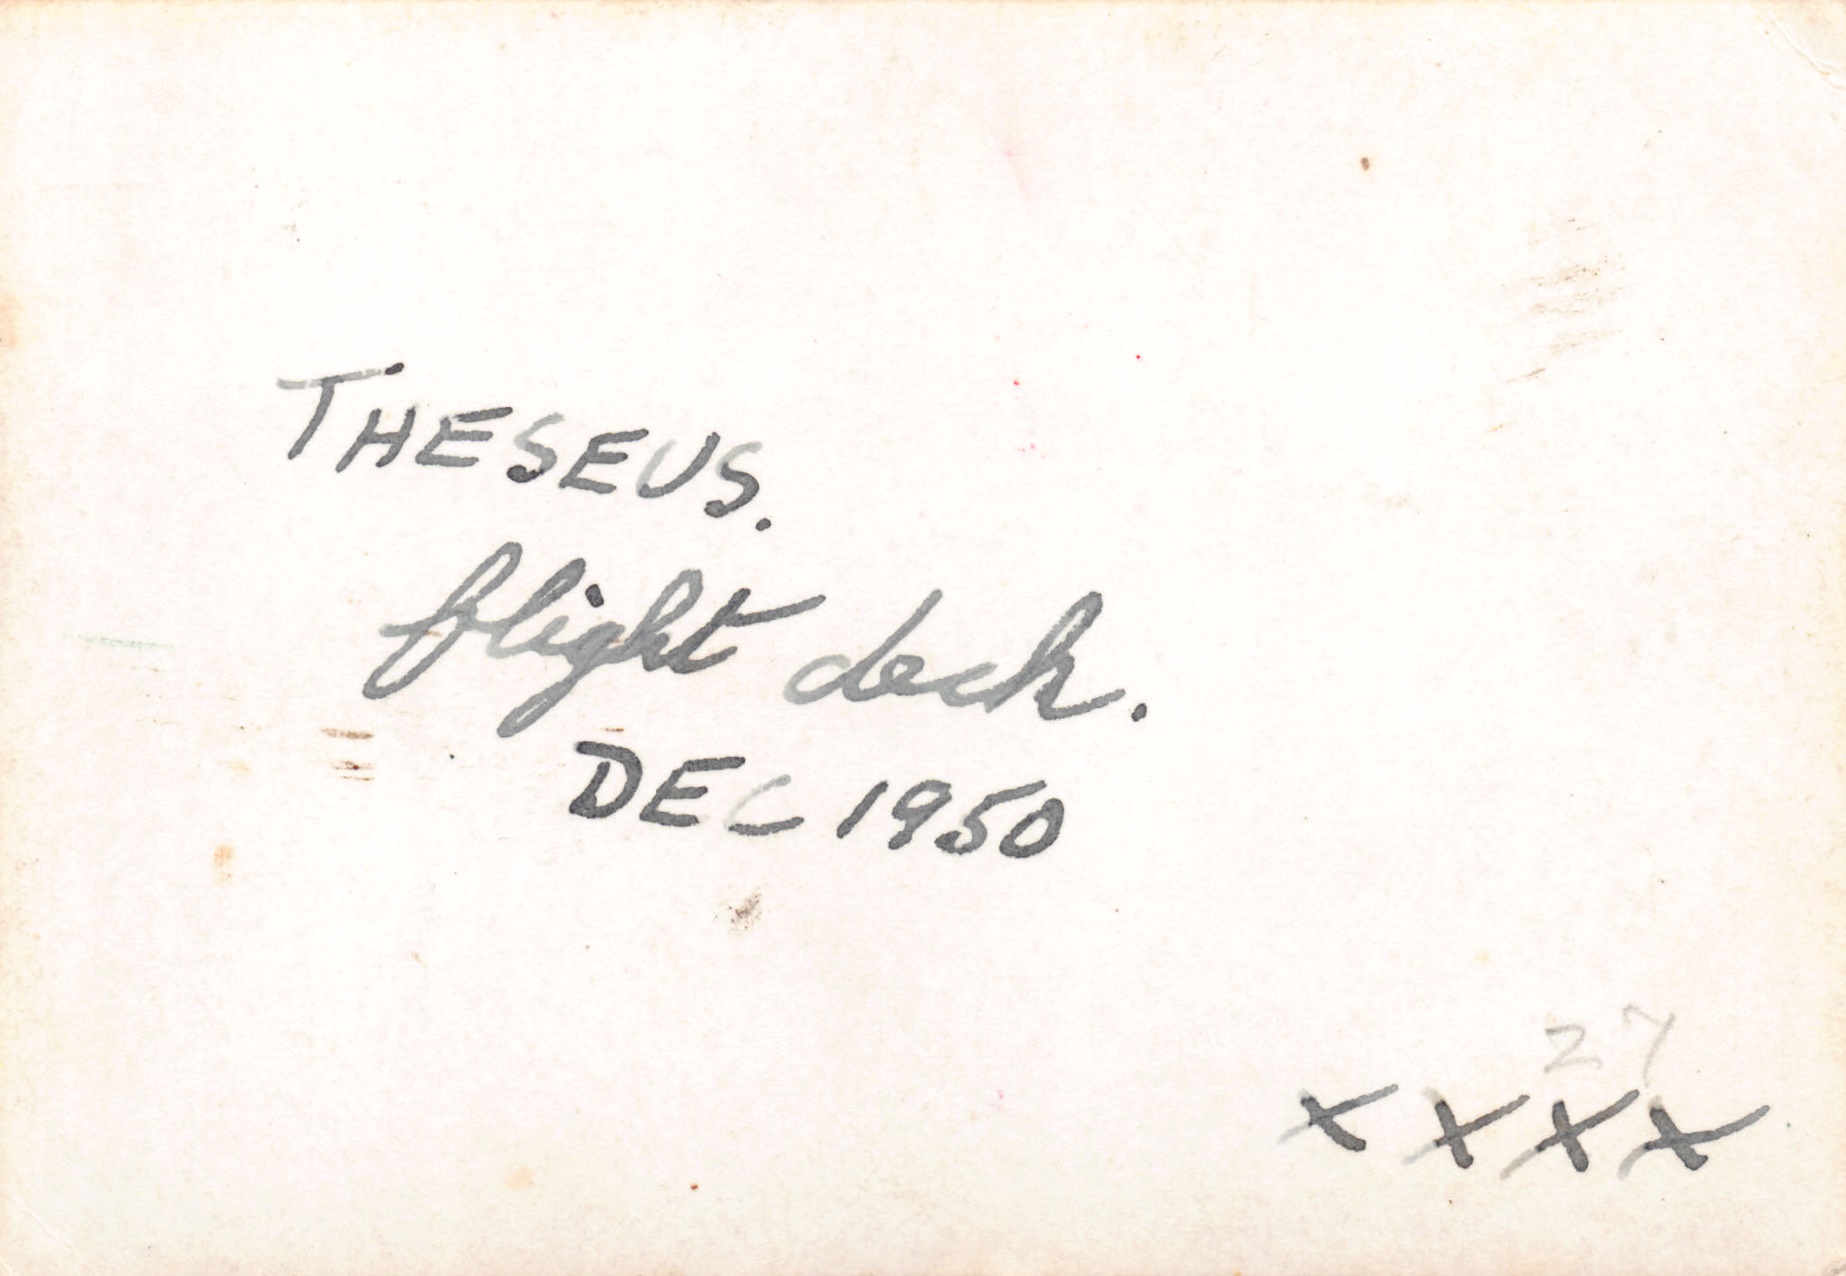 THESEUS.
flight deck.
DEC 1950
27
x x x x